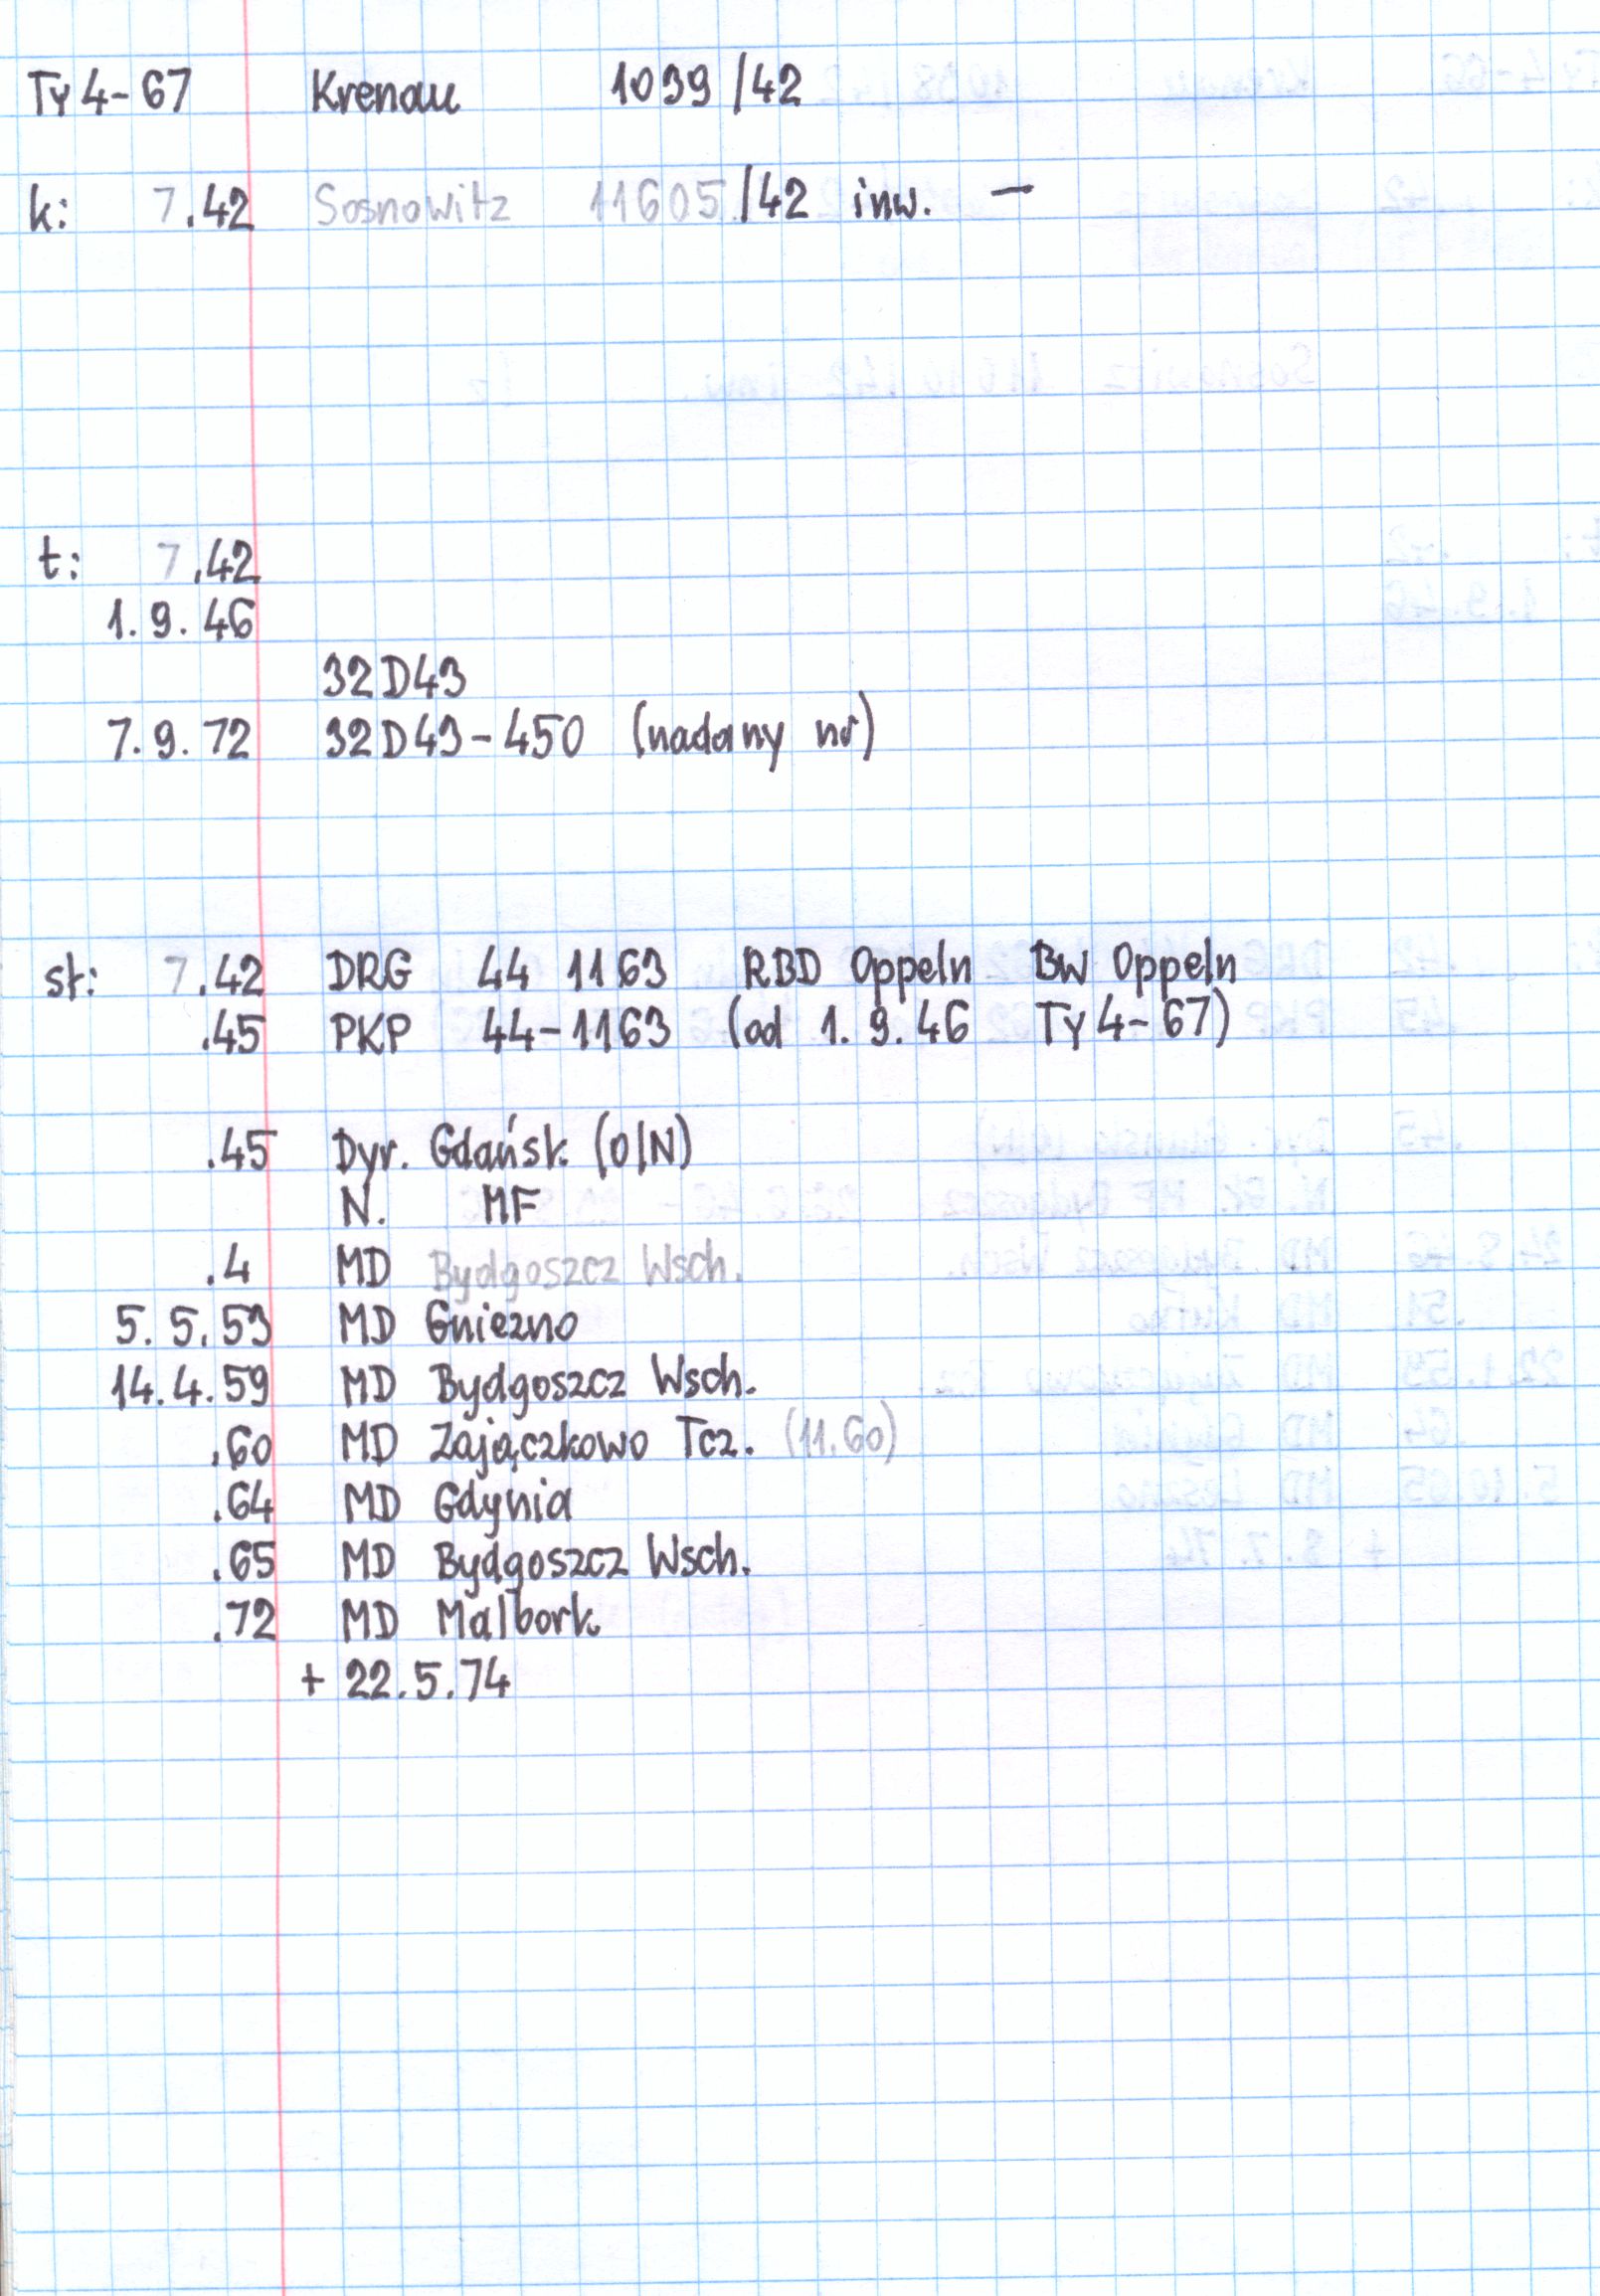 Ty4-67 Krenau 1039/42
k: 7.42 Sosnowitz 11605/42 inw. —
t: 7.42
1.9.46
32D43
7.9.72 32D43-450 (nadany nr)
st: 7.42 DRG 44 1163 RBD Oppeln BW Oppeln
.45 PKP 44-1163 (od 1.9.46 Ty4-67)
.45 Dyr. Gdańsk (O/N)
N. MF
.4 MD Bydgoszcz Wsch.
5.5.53 MD Gniezno
14.4.59 MD Bydgoszcz Wsch.
.60 MD Zajączkowo Tcz. (11.60)
.64 MD Gdynia
.65 MD Bydgoszcz Wsch.
.72 MD Malbork
+ 22.5.74